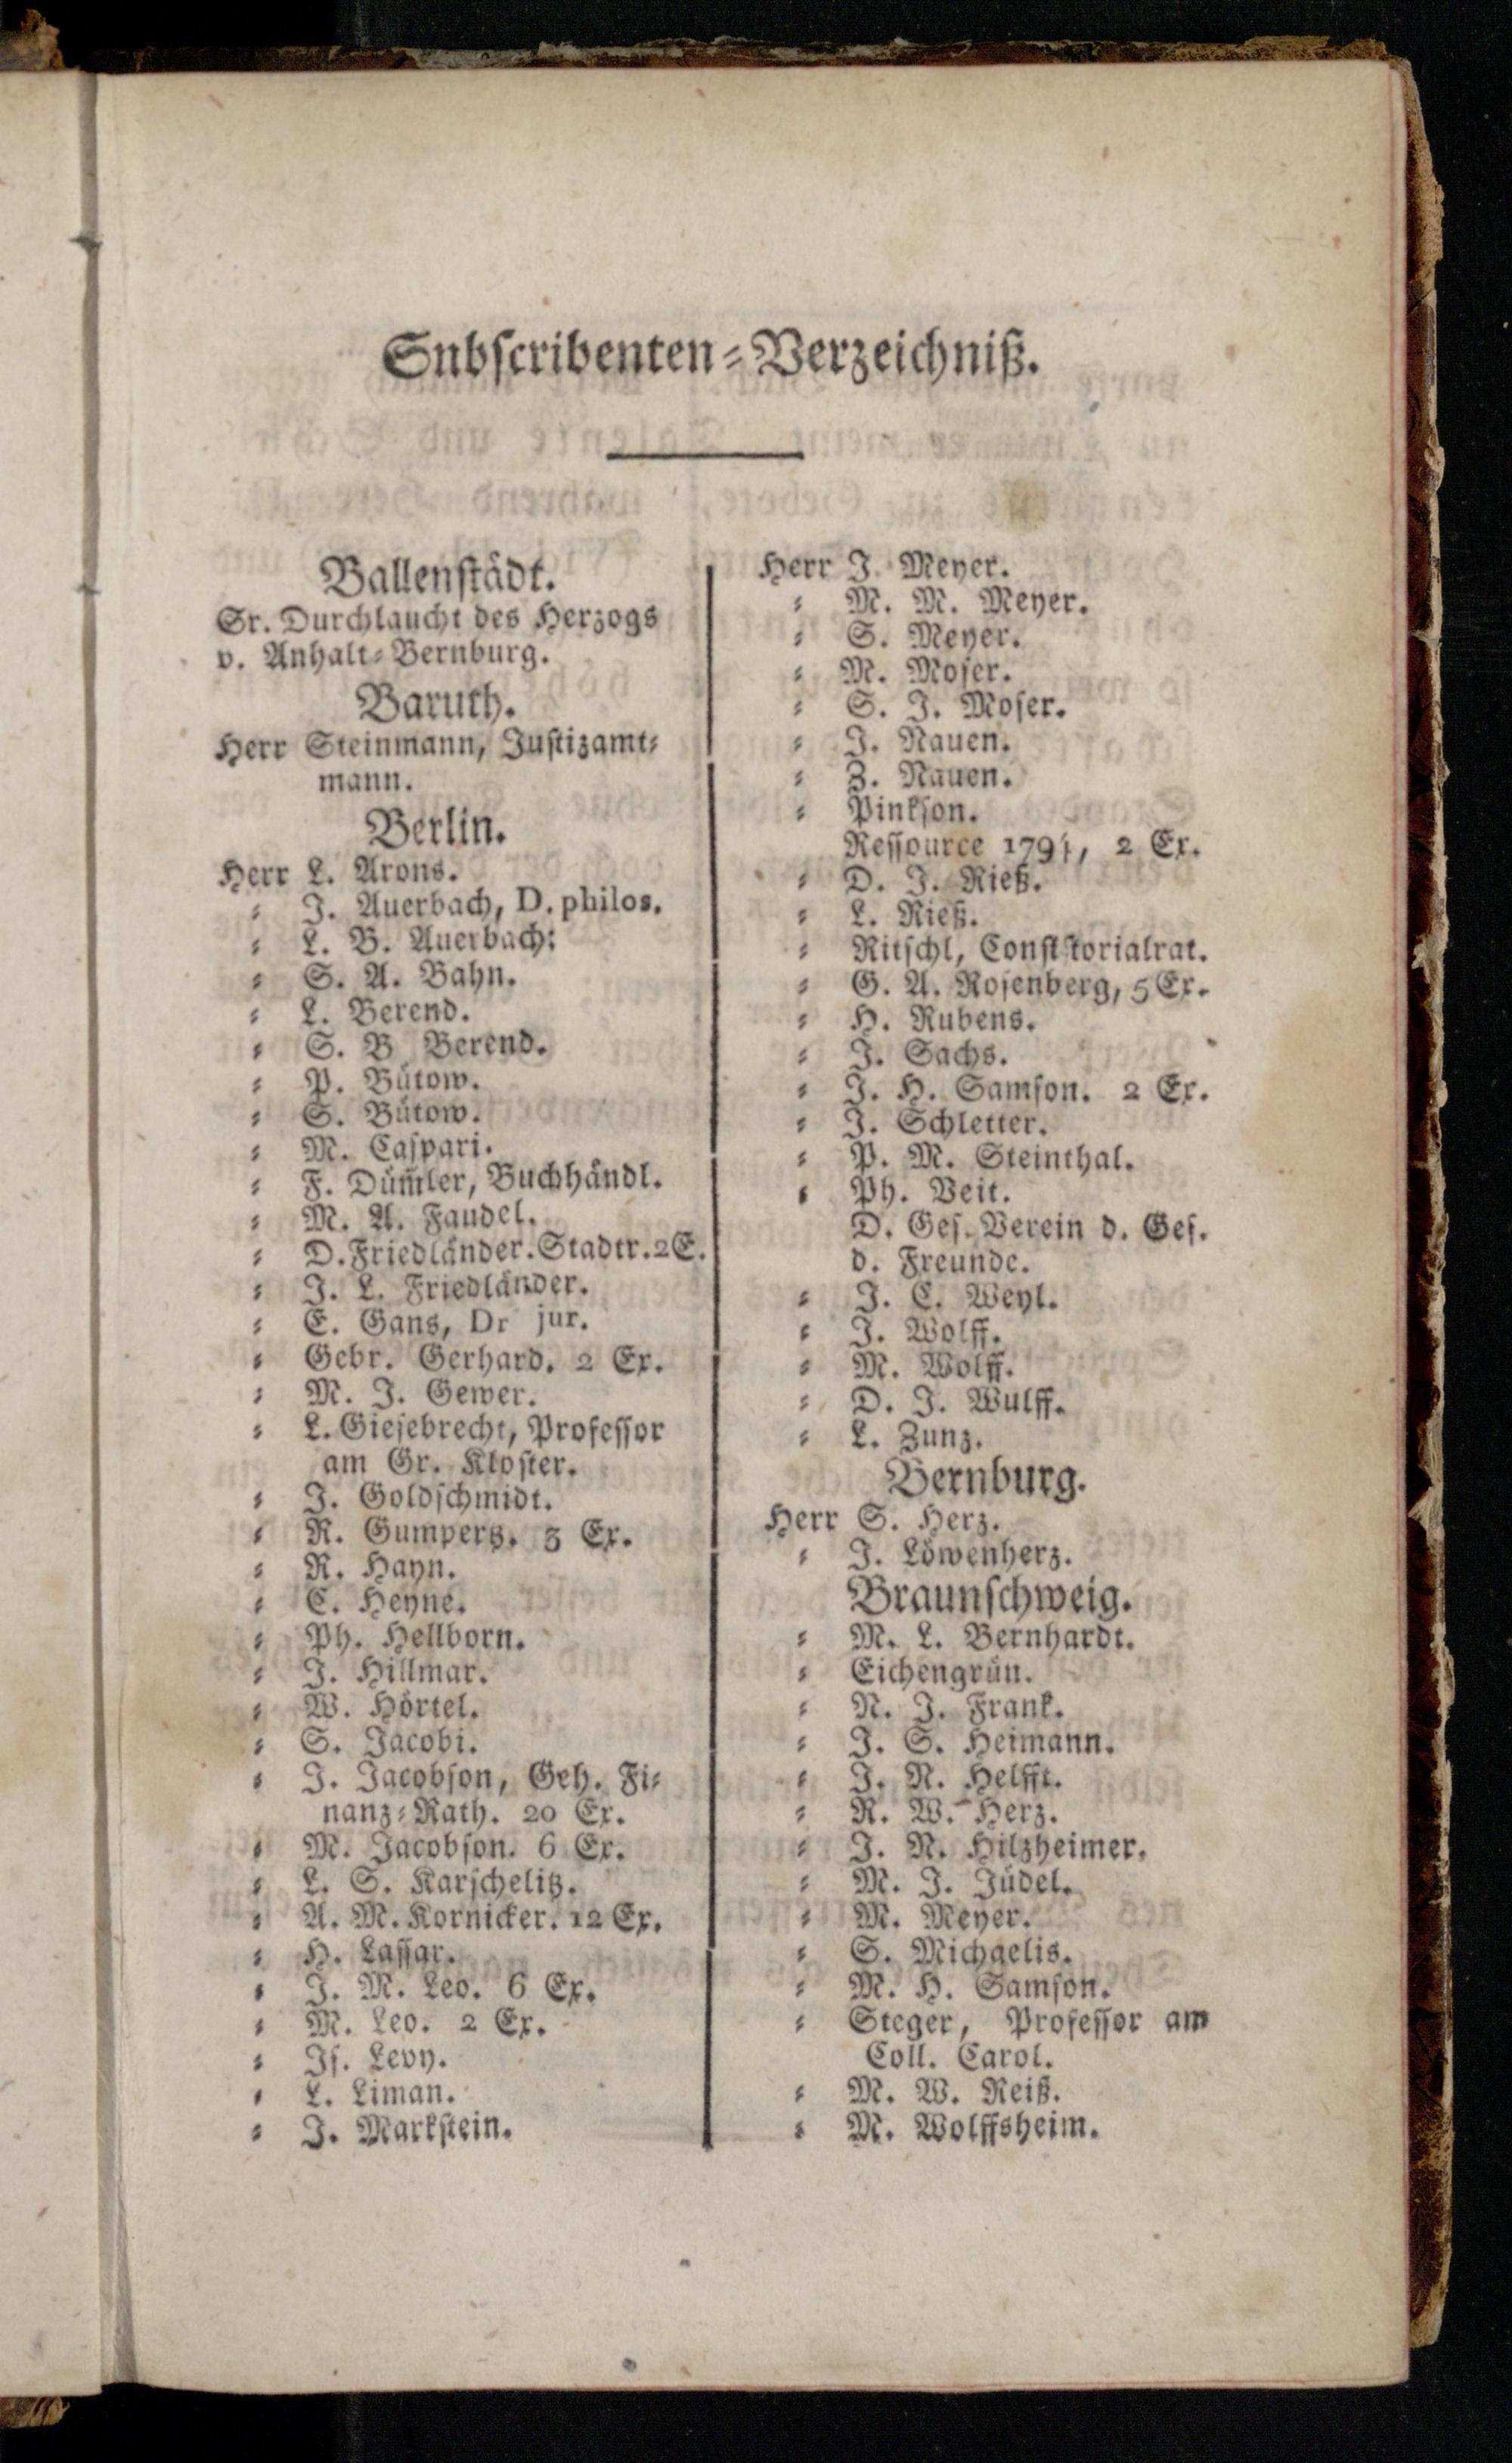 Snbſcribenten⸗Verzeichniß.
Ballenſtädt.
Sr. Durchlaucht des Herzogs
v. Anhalt⸗Bernburg.
Baruth.
Herr Steinmann, Juſtizamt⸗
mann.
Berlin.
Herr L. Arons.
⸗ J. Auerbach, D. philos.
⸗ L. B. Auerbach:
⸗ S. A. Bahn.
⸗ L. Berend.
⸗ S. B Berend.
⸗ P. Bütow.
⸗ S. Bütow.
⸗ M. Caſpari.
⸗ F. Düm̃ler, Buchhändl.
⸗ M. A. Faudel.
⸗ D. Friedländer. Stadtr. 2 E.
⸗ J. L. Friedländer.
⸗ E. Gans, Dr jur.
⸗ Gebr. Gerhard. 2 Ex.
⸗ M. J. Gewer.
⸗ L. Gieſebrecht, Profeſſor
am Gr. Kloſter.
⸗ J. Goldſchmidt.
⸗ R. Gumpertz. 3 Ex.
⸗ R. Hayn.
⸗ C. Heyne.
⸗ Ph. Hellborn.
⸗ J. Hillmar.
⸗ W. Hörtel.
⸗ S. Jacobi.
⸗ J. Jacobſon, Geh. Fi⸗
nanz⸗Rath. 20 Ex.
⸗ M. Jacobſon. 6 Ex.
⸗ L. S. Karſchelitz.
⸗ A. M. Kornicker. 12 Ex.
⸗ H. Laſſar.
⸗ J. M. Leo. 6 Ex.
⸗ M. Leo. 2 Ex.
⸗ Jſ. Levy.
⸗ L. Liman.
⸗ J. Markſtein.
Herr J. Meyer.
⸗ M. M. Meyer.
⸗ S. Meyer.
⸗ M. Moſer.
⸗ S. J. Moſer.
⸗ J. Nauen.
⸗ Z. Nauen.
⸗ Pinkſon.
Reſſource 1794, 2 Ex.
⸗ D. J. Rieß.
⸗ L. Rieß.
⸗ Ritſchl, Conſiſtorialrat.
⸗ G. A. Roſenberg, 5 Ex.
⸗ H. Rubens.
⸗ J. Sachs.
⸗ J. H. Samſon. 2 Ex.
⸗ J. Schletter.
⸗ P. M. Steinthal.
⸗ Ph. Veit.
D. Geſ. Verein d. Geſ.
d. Freunde.
⸗ J. C. Weyl.
⸗ J. Wolff.
⸗ M. Wolff.
⸗ D. J. Wulff.
⸗ L. Zunz.
Bernburg.
Herr S. Herz.
⸗ J. Löwenherz.
Braunſchweig.
⸗ M. L. Bernhardt.
⸗ Eichengrün.
⸗ N. J. Frank.
⸗ J. S. Heimann.
⸗ J. N. Helfft.
⸗ R. W. Herz.
⸗ J. N. Hilzheimer.
⸗ M. J. Jüdel.
⸗ M. Meyer.
⸗ S. Michaelis.
⸗ M. H. Samſon.
⸗ Steger, Profeſſor am
Coll. Carol.
⸗ M. W. Reiß.
⸗ M. Wolffsheim.